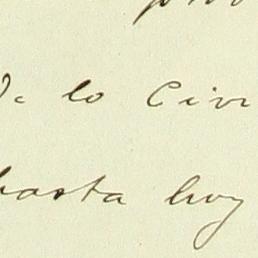 de lo Civi
hasta hoy